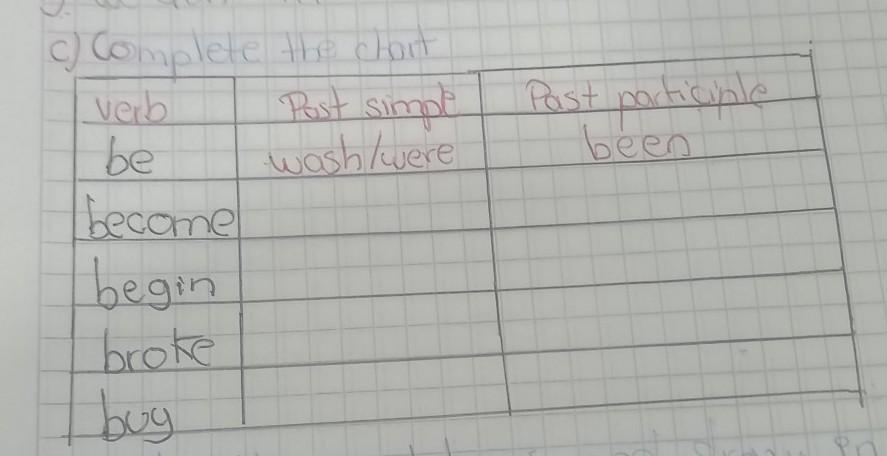 c) Complete the chart
verb Past simple Past participle
be wash/were been
become
begin
broke
buy